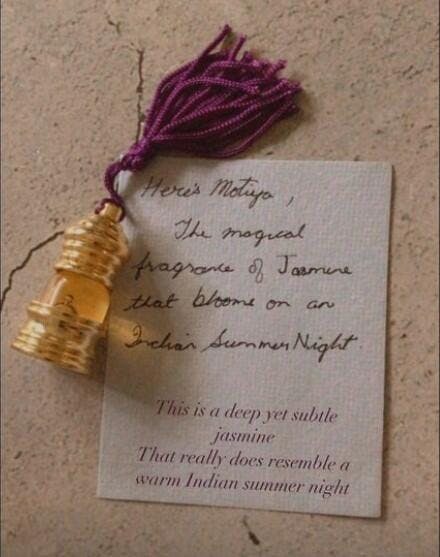 Here's Motiya,
The magical
fragrance of Jasmine
that blooms on an
Indian Summer Night.
This is a deep yet subtle
jasmine
That really does resemble a
warm Indian summer night